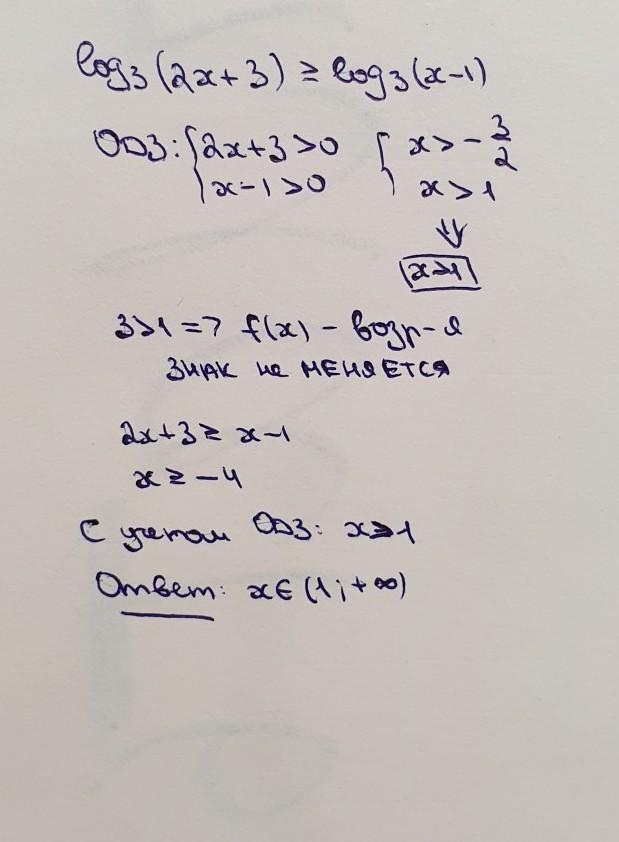 log₃(2x+3) ≥ log₃(x-1)
ОДЗ: { 2x+3>0 { x > -3/2
x-1>0 x > 1
⇓
x>1
3>1 => f(x) - возр-я
ЗНАК не МЕНЯЕТСЯ
2x+3 ≥ x-1
x ≥ -4
С учетом ОДЗ: x>1
Ответ: x∈(1;+∞)